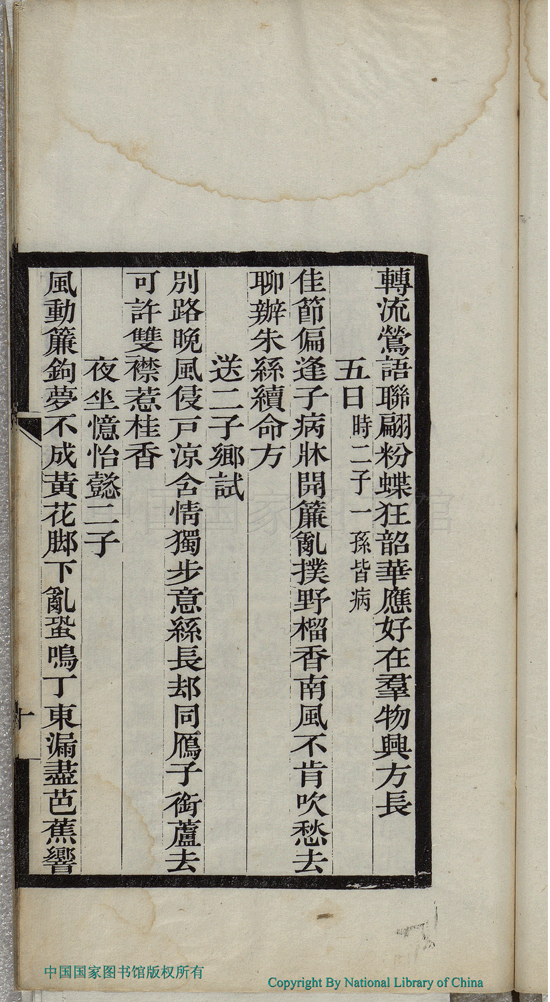 轉流鶯語聯翩粉蝶狂韶華應好在羣物興方長
五日時二子一孫皆病
佳節偏逢子病牀開簾亂撲野榴香南風不肯吹愁去
聊辦朱絲續命方
送二子鄉試
別路晚風侵戸凉含情獨步意絲長却同鴈子銜蘆去
可許雙襟惹桂香
夜坐憶怡懿二子
風動簾鉤夢不成黃花脚下亂蛩鳴丁東漏盡芭蕉響
十
中国国家图书馆
中国国家图书馆版权所有
Copyright By National Library of China